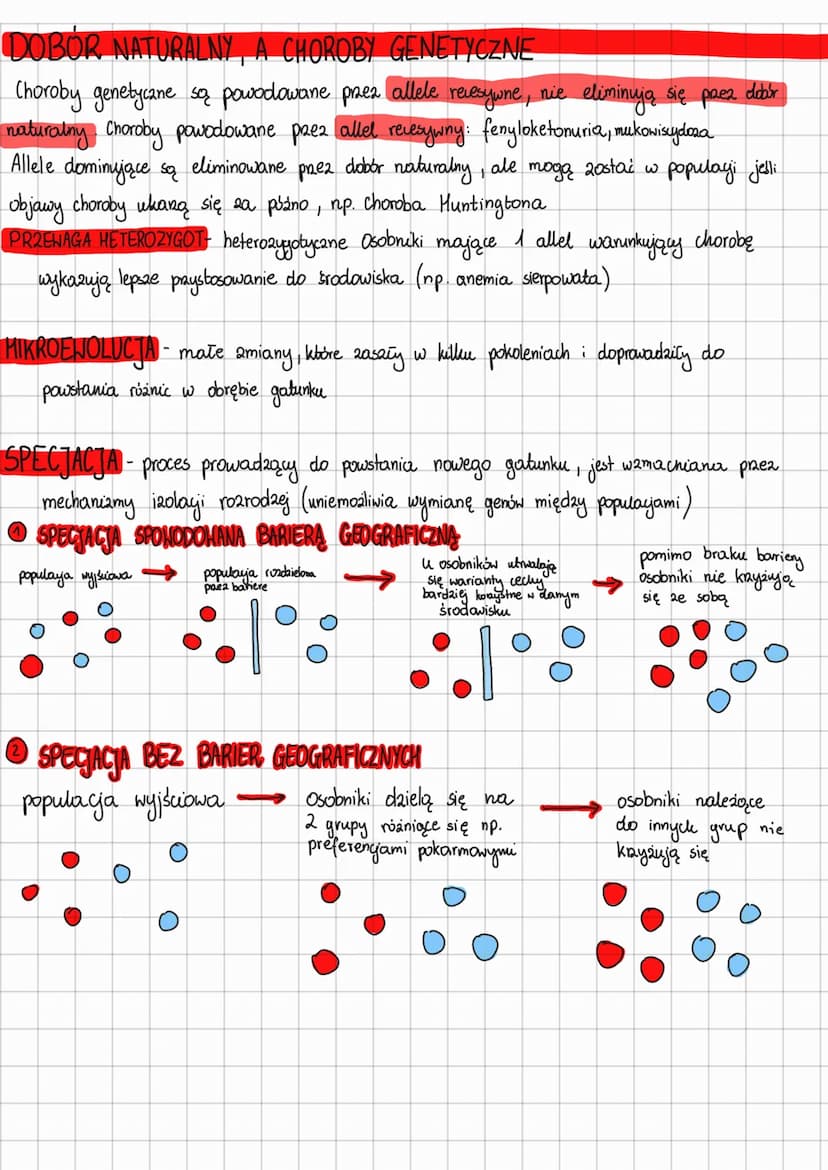 DOBÓR NATURALNY, A CHOROBY GENETYCZNE
Choroby genetyczne są powodowane przez allele recesywne, nie eliminują się przez dobór
naturalny. Choroby powodowane przez allel recesywny: fenyloketonuria, mukowiscydoza
Allele dominujące są eliminowane przez dobór naturalny, ale mogą zostać w populacji jeśli
objawy choroby ukażą się za późno, np. choroba Huntingtona
PRZEWAGA HETEROZYGOT- heterozygotyczne osobniki mające 1 allel warunkujący chorobę
wykazują lepsze przystosowanie do środowiska (np. anemia sierpowata)
MIKROEWOLUCJA - małe zmiany, które zaszły w kilku pokoleniach i doprowadziły do
powstania różnic w obrębie gatunku
SPECJACJA - proces prowadzący do powstania nowego gatunku, jest wzmacniana przez
mechanizmy izolacji rozrodzej (uniemożliwia wymianę genów między populacjami)
1 SPECJACJA SPOWODOWANA BARIERĄ GEOGRAFICZNĄ
populacja wyjściowa
populacja rozdzielona
przez barierę
u osobników utrwalają
się warianty cechy
bardziej korzystne w danym
środowisku
pomimo braku bariery
osobniki nie krzyżują
się ze sobą
2 SPECJACJA BEZ BARIER GEOGRAFICZNYCH
populacja wyjściowa
Osobniki dzielą się na
2 grupy różniące się np.
preferencjami pokarmowymi
osobniki należące
do innych grup nie
krzyżują się